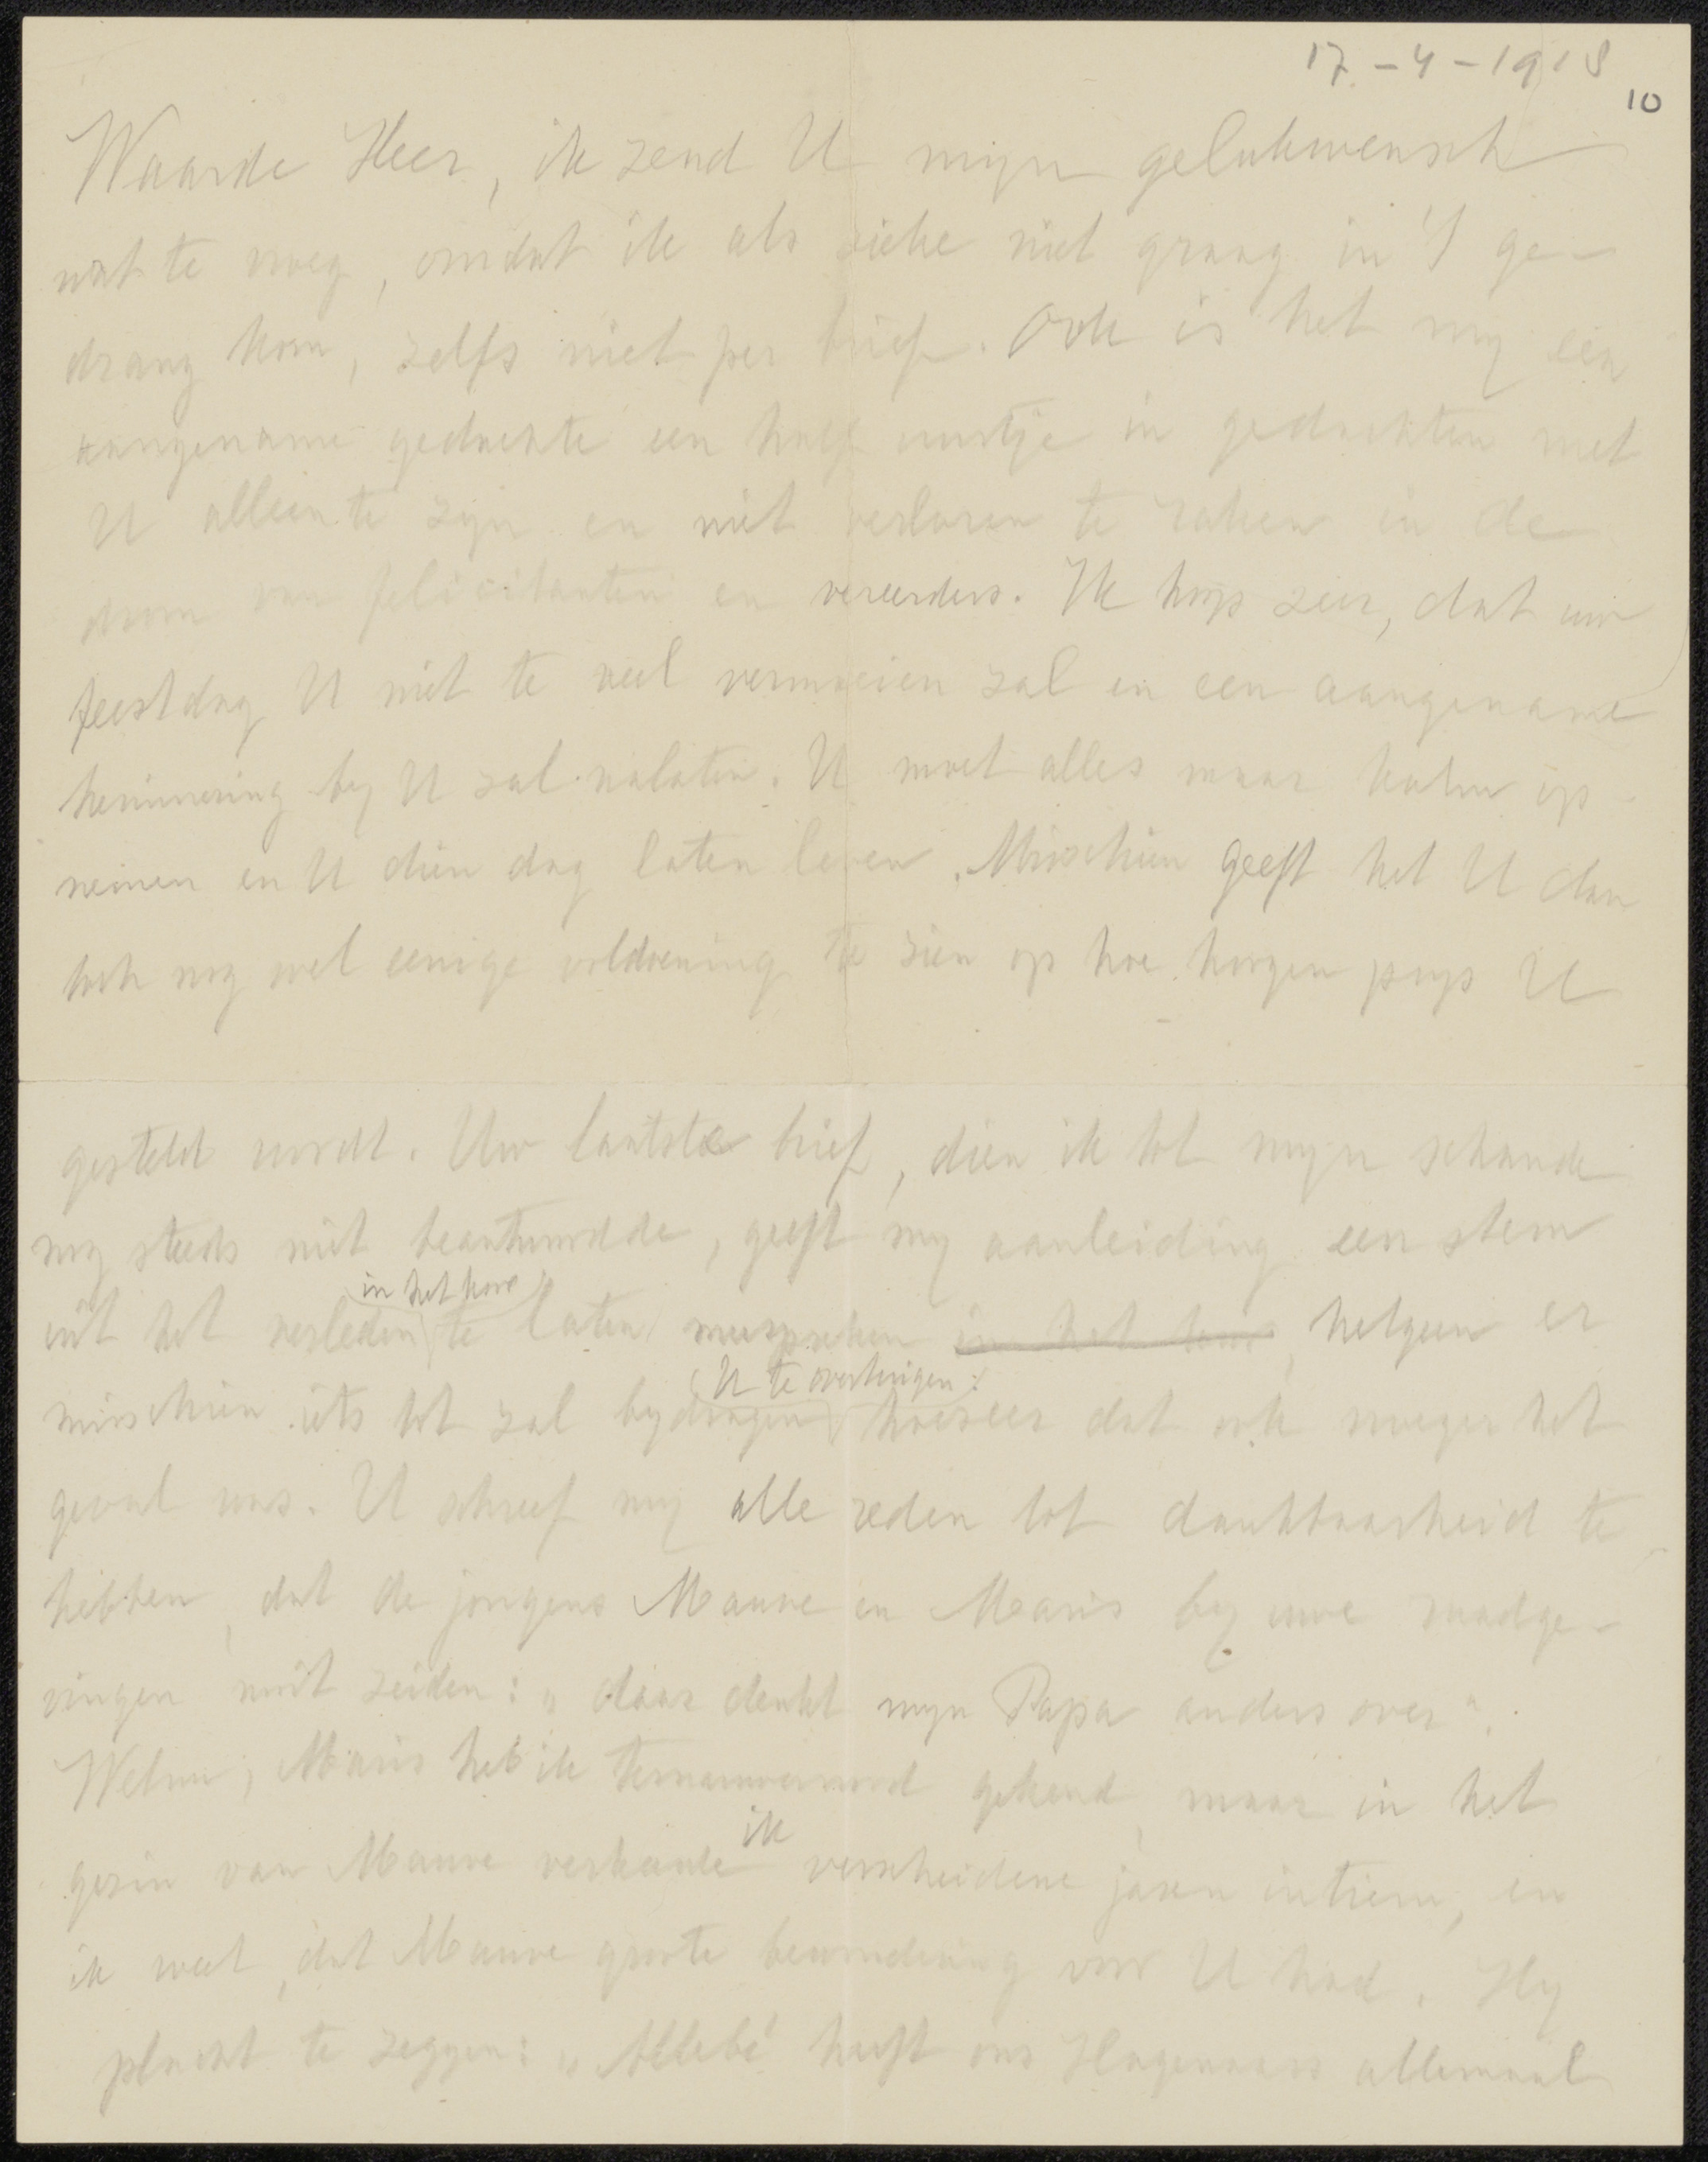 17-4-1918
10
Waarde Heer, ik zend U mijn gelukwensch
wat te vroeg, omdat ik als zieke niet graag in 't ge-
drang kom, zelfs niet per brief. Ook is het my een
aangename gedachte een half uurtje in gedachten met
U alleen te zijn en niet verloren te raken in de
drom van felicitanten en vereerders. Ik hoop zeer, dat uw
feestdag U niet te veel vermoeien zal en een aangename
herinnering by U zal nalaten. U moet alles maar kalm op-
nemen en U dien dag laten leven. Misschien geeft het U dan
toch nog wel eenige voldoening te zien op hoe hoogen prijs U
gesteld wordt. Uw laatste brief, dien ik tot myn schande
nog steeds niet beantwoordde, geeft my aanleiding een stem
uit het verleden in het koor te laten meespreken in het koor, hetgeen er
misschien iets tot zal bydragen U te overtuigen: hoezeer dat ook vroeger het
geval was. U schreef my alle reden tot dankbaarheid te
hebben, dat de jongens Mauve en Maris by uwe raadge-
vingen nooit zeiden: „daar denkt myn Papa anders over".
Welnu, Maris heb ik ternauwernood gekend, maar in het
gezin van Mauve verkeerde ik verscheidene jaren intiem, en
ik weet, dat Mauve groote bewondering voor U had. Hy
placht te zeggen: „Allebé heeft ons Hagenaars allemaal